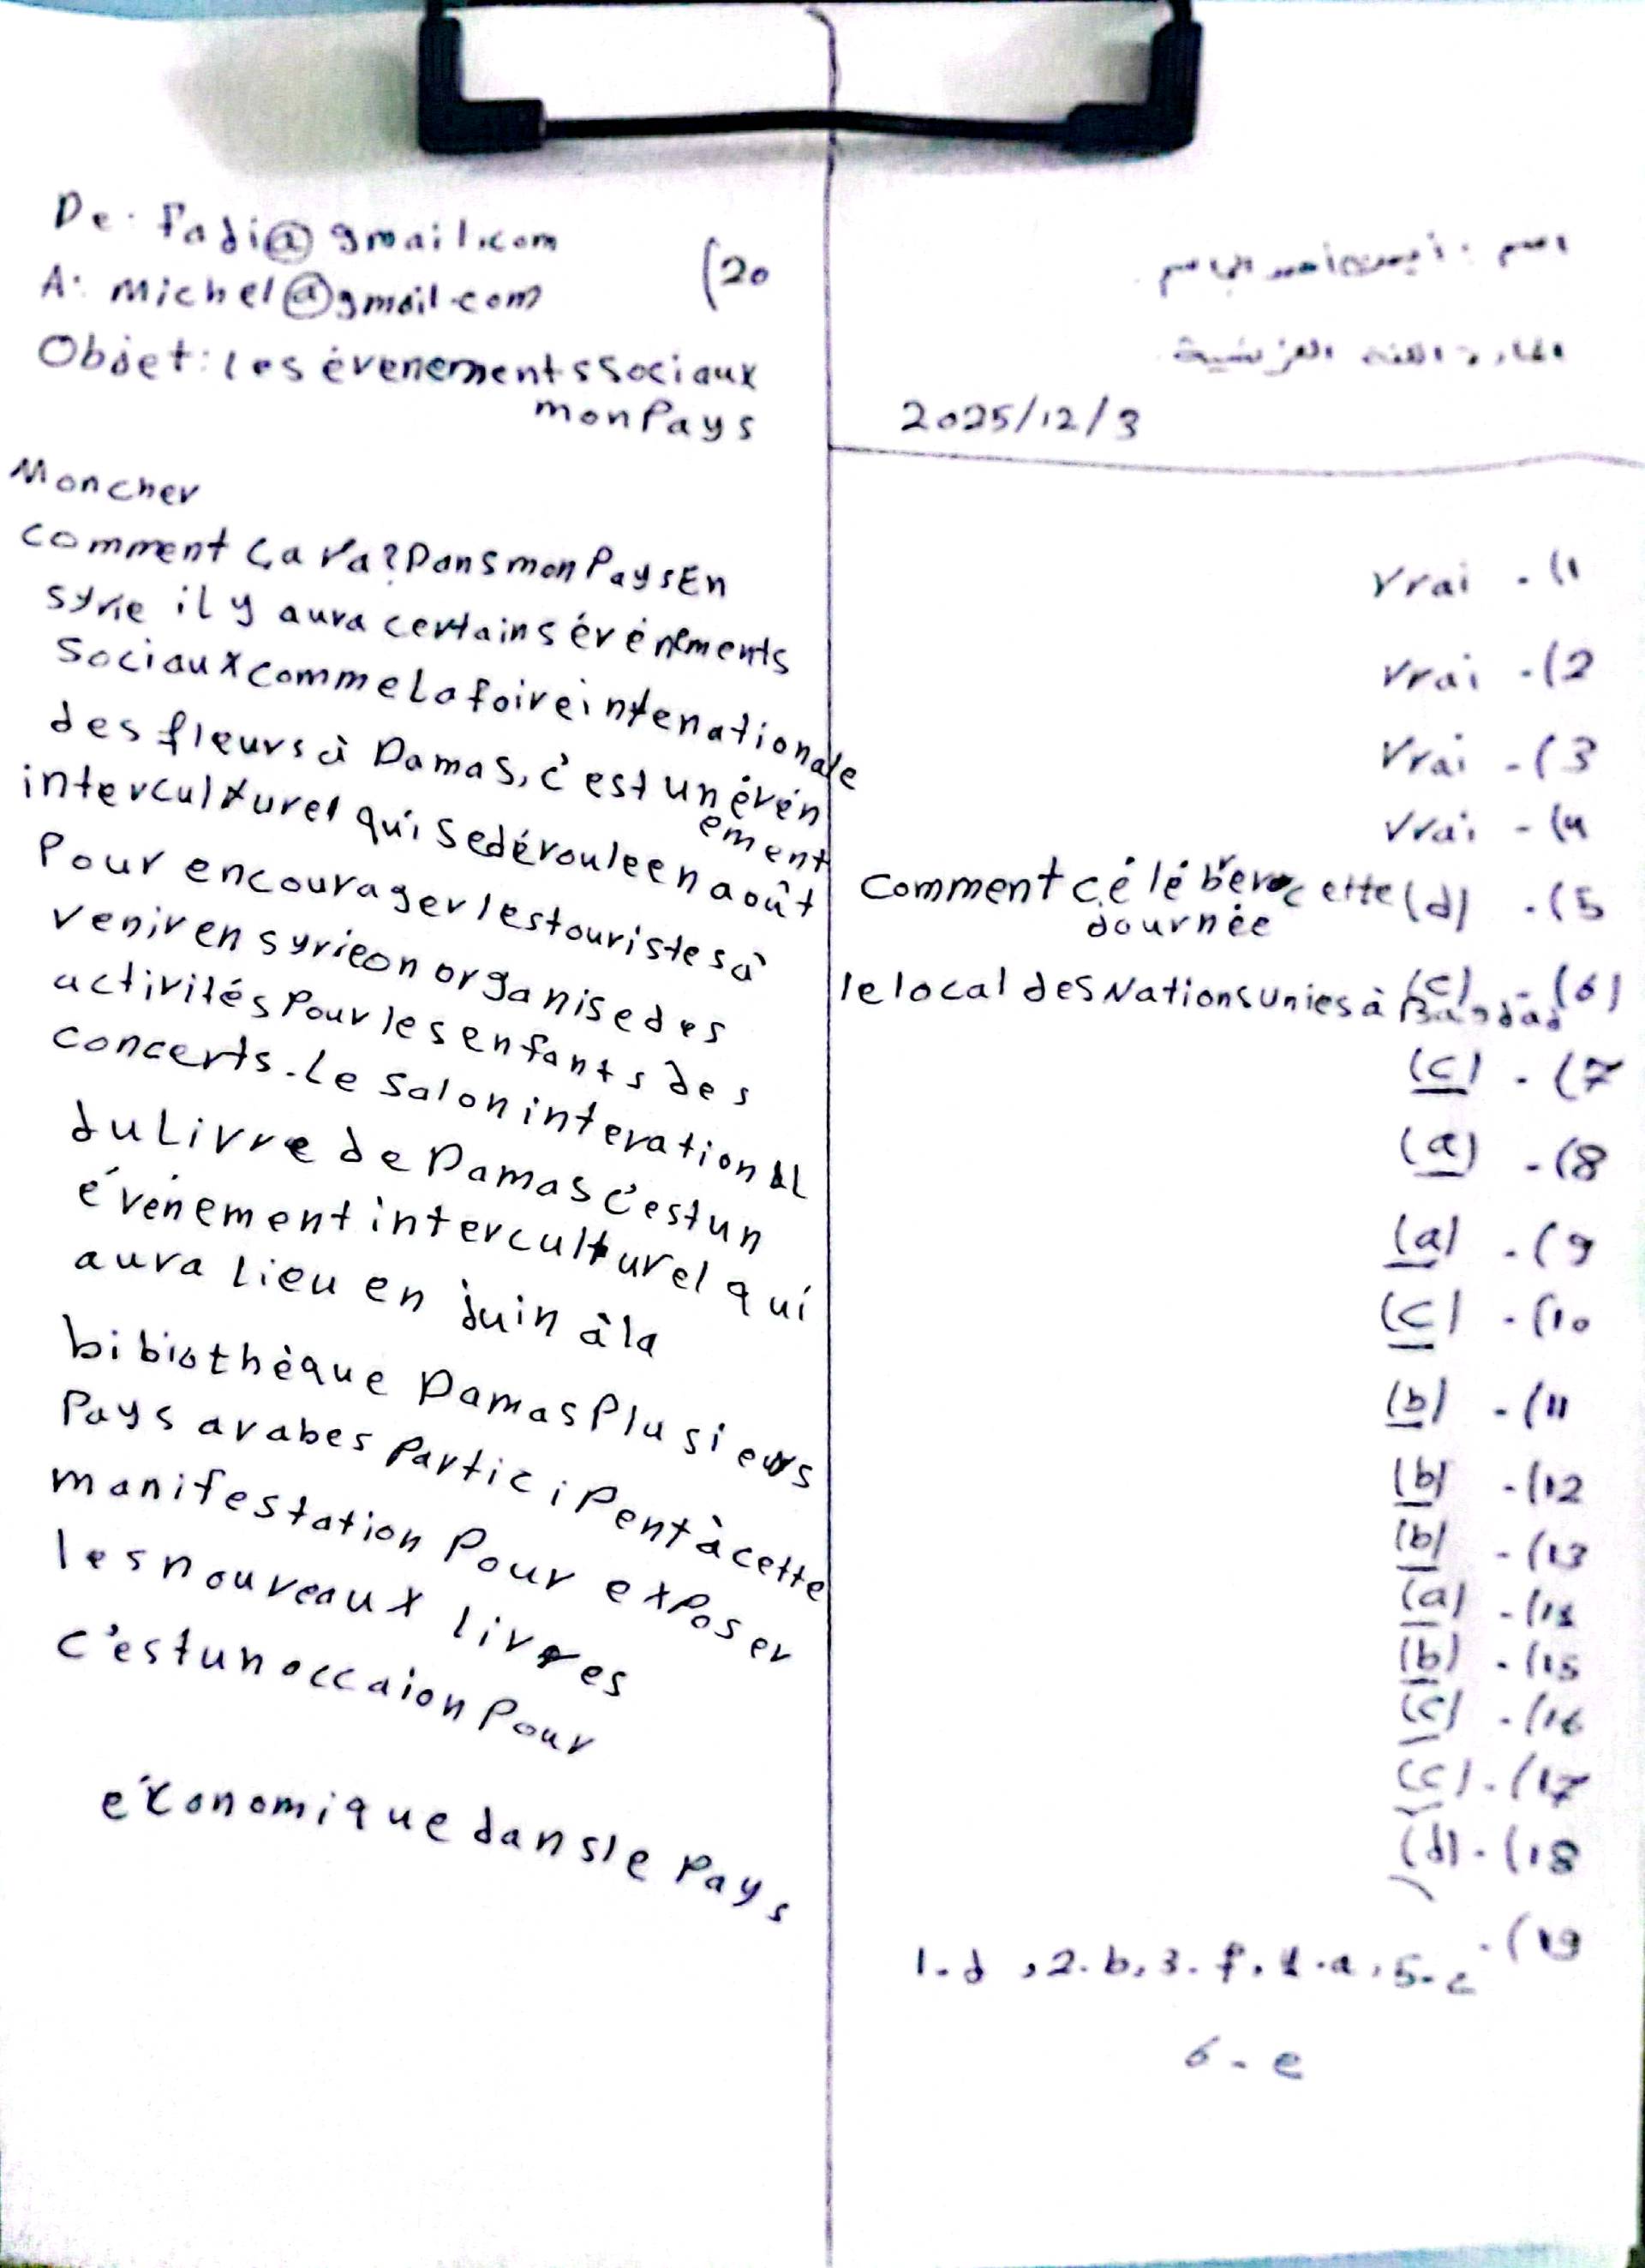 اسم : أيهم أحمد الجاسم
المادة اللغة الفرنسية
2025/12/3
vrai - (1
vrai - (2
vrai - (3
vrai - (4
comment célébrer cette (d) - (5
Journée
(c) - (6)
le local des Nations unies à Bagdad
(c) - (7
(a) - (8
(a) - (9
(c) - (10
(b) - (11
(b) - (12
(b) - (13
(a) - (14
(b) - (15
(c) - (16
(c) - (17
(d) - (18
1-d, 2-b, 3-f, 4-a, 5-c - (19
6-e
De: Fadi@gmail.com
(20
A: Michel@gmail.com
Objet: les évenements Sociaux
mon Pays
Mon cher
comment ça va? Dans mon Pays En
syrie il y aura certains événements
Sociaux comme La foire intenationale
des fleurs à Damas, c'est un évén
ement
interculturel qui se déroule en août
Pour encourager les touristes à
venir en syrie on organise des
activités Pour les enfants des
concerts. Le salon interational
du Livre de Damas c'est un
événement interculturel qui
aura Lieu en Juin à la
bibiothèque Damas Plusieurs
Pays arabes Participent à cette
manifestation Pour exposer
les nouveaux livres
c'est un occaion Pour
éconamique dans le Pays